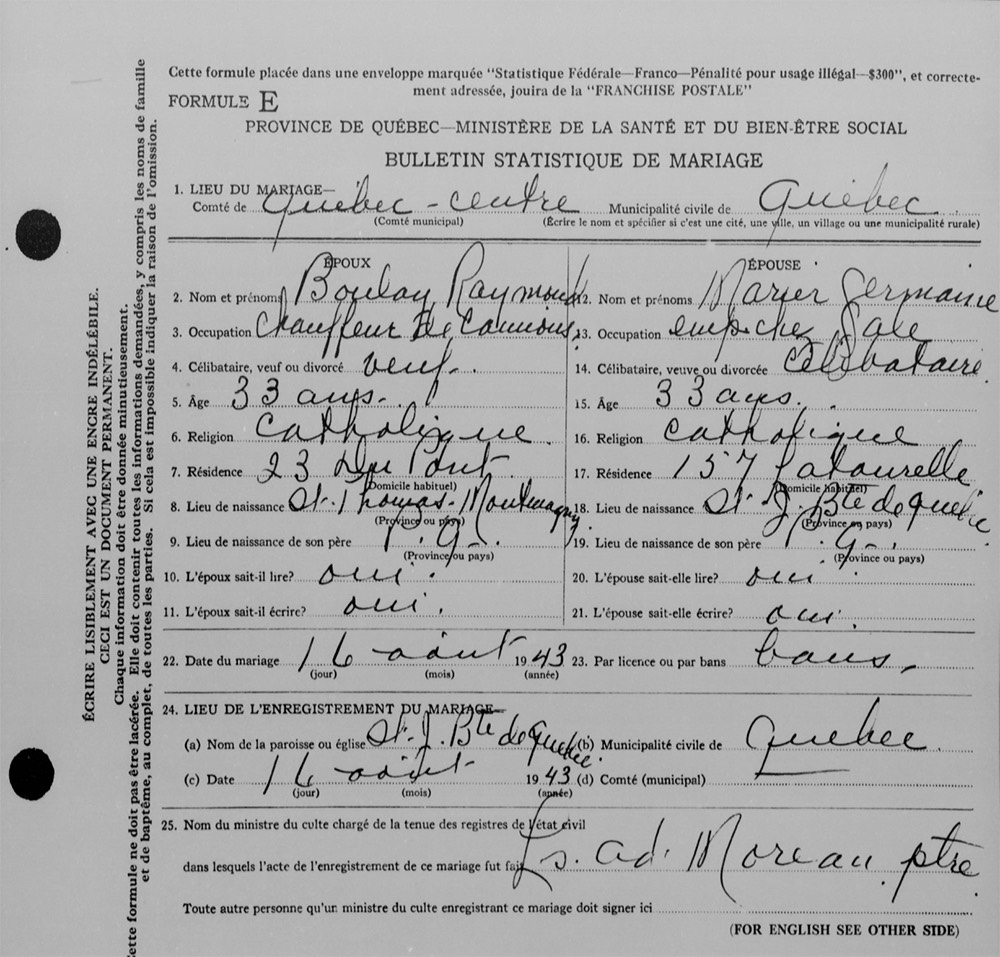 Cette formule placée dans une enveloppe marquée "Statistique Fédérale—Franco—Pénalité pour usage illégal—$300", et correcte-
ment adressée, jouira de la "FRANCHISE POSTALE"
FORMULE E
PROVINCE DE QUÉBEC—MINISTÈRE DE LA SANTÉ ET DU BIEN-ÊTRE SOCIAL
BULLETIN STATISTIQUE DE MARIAGE
1. LIEU DU MARIAGE—
Comté de Québec-centre Municipalité civile de Québec
(Comté municipal) (Écrire le nom et spécifier si c'est une cité, une ville, un village ou une municipalité rurale)
ÉPOUX
2. Nom et prénoms Boulay Raymond
3. Occupation Chauffeur de Camions
4. Célibataire, veuf ou divorcé veuf.
5. Âge 33 ans.
6. Religion Catholique.
7. Résidence 23 Du Pont
(Domicile habituel)
8. Lieu de naissance St. Thomas. Montmagny
(Province ou pays)
9. Lieu de naissance de son père P. Q.
(Province ou pays)
10. L'époux sait-il lire? oui.
11. L'époux sait-il écrire? oui.
ÉPOUSE
12. Nom et prénoms Marier Germaine
13. Occupation
14. Célibataire, veuve ou divorcée Célibataire.
15. Âge 33 ans.
16. Religion Catholique
17. Résidence 157 Latourelle
(Domicile habituel)
18. Lieu de naissance St. J. Bte de Québec
(Province ou pays)
19. Lieu de naissance de son père P. Q.
(Province ou pays)
20. L'épouse sait-elle lire? oui.
21. L'épouse sait-elle écrire? oui.
22. Date du mariage 16 août 1943 23. Par licence ou par bans bans.
(jour) (mois) (année)
24. LIEU DE L'ENREGISTREMENT DU MARIAGE—
(a) Nom de la paroisse ou église St. J. Bte de Québec. (b) Municipalité civile de Québec.
(c) Date 16 août 1943 (d) Comté (municipal)
(jour) (mois) (année)
25. Nom du ministre du culte chargé de la tenue des registres de l'état civil
dans lesquels l'acte de l'enregistrement de ce mariage fut fait Ls. Ad. Moreau ptre
Toute autre personne qu'un ministre du culte enregistrant ce mariage doit signer ici
(FOR ENGLISH SEE OTHER SIDE)
ÉCRIRE LISIBLEMENT AVEC UNE ENCRE INDÉLÉBILE.
CECI EST UN DOCUMENT PERMANENT.
Chaque information doit être donnée minutieusement.
Cette formule ne doit pas être lacérée. Elle doit contenir toutes les informations demandées, y compris les noms de famille
et de baptême, au complet, de toutes les parties. Si cela est impossible indiquer la raison de l'omission.